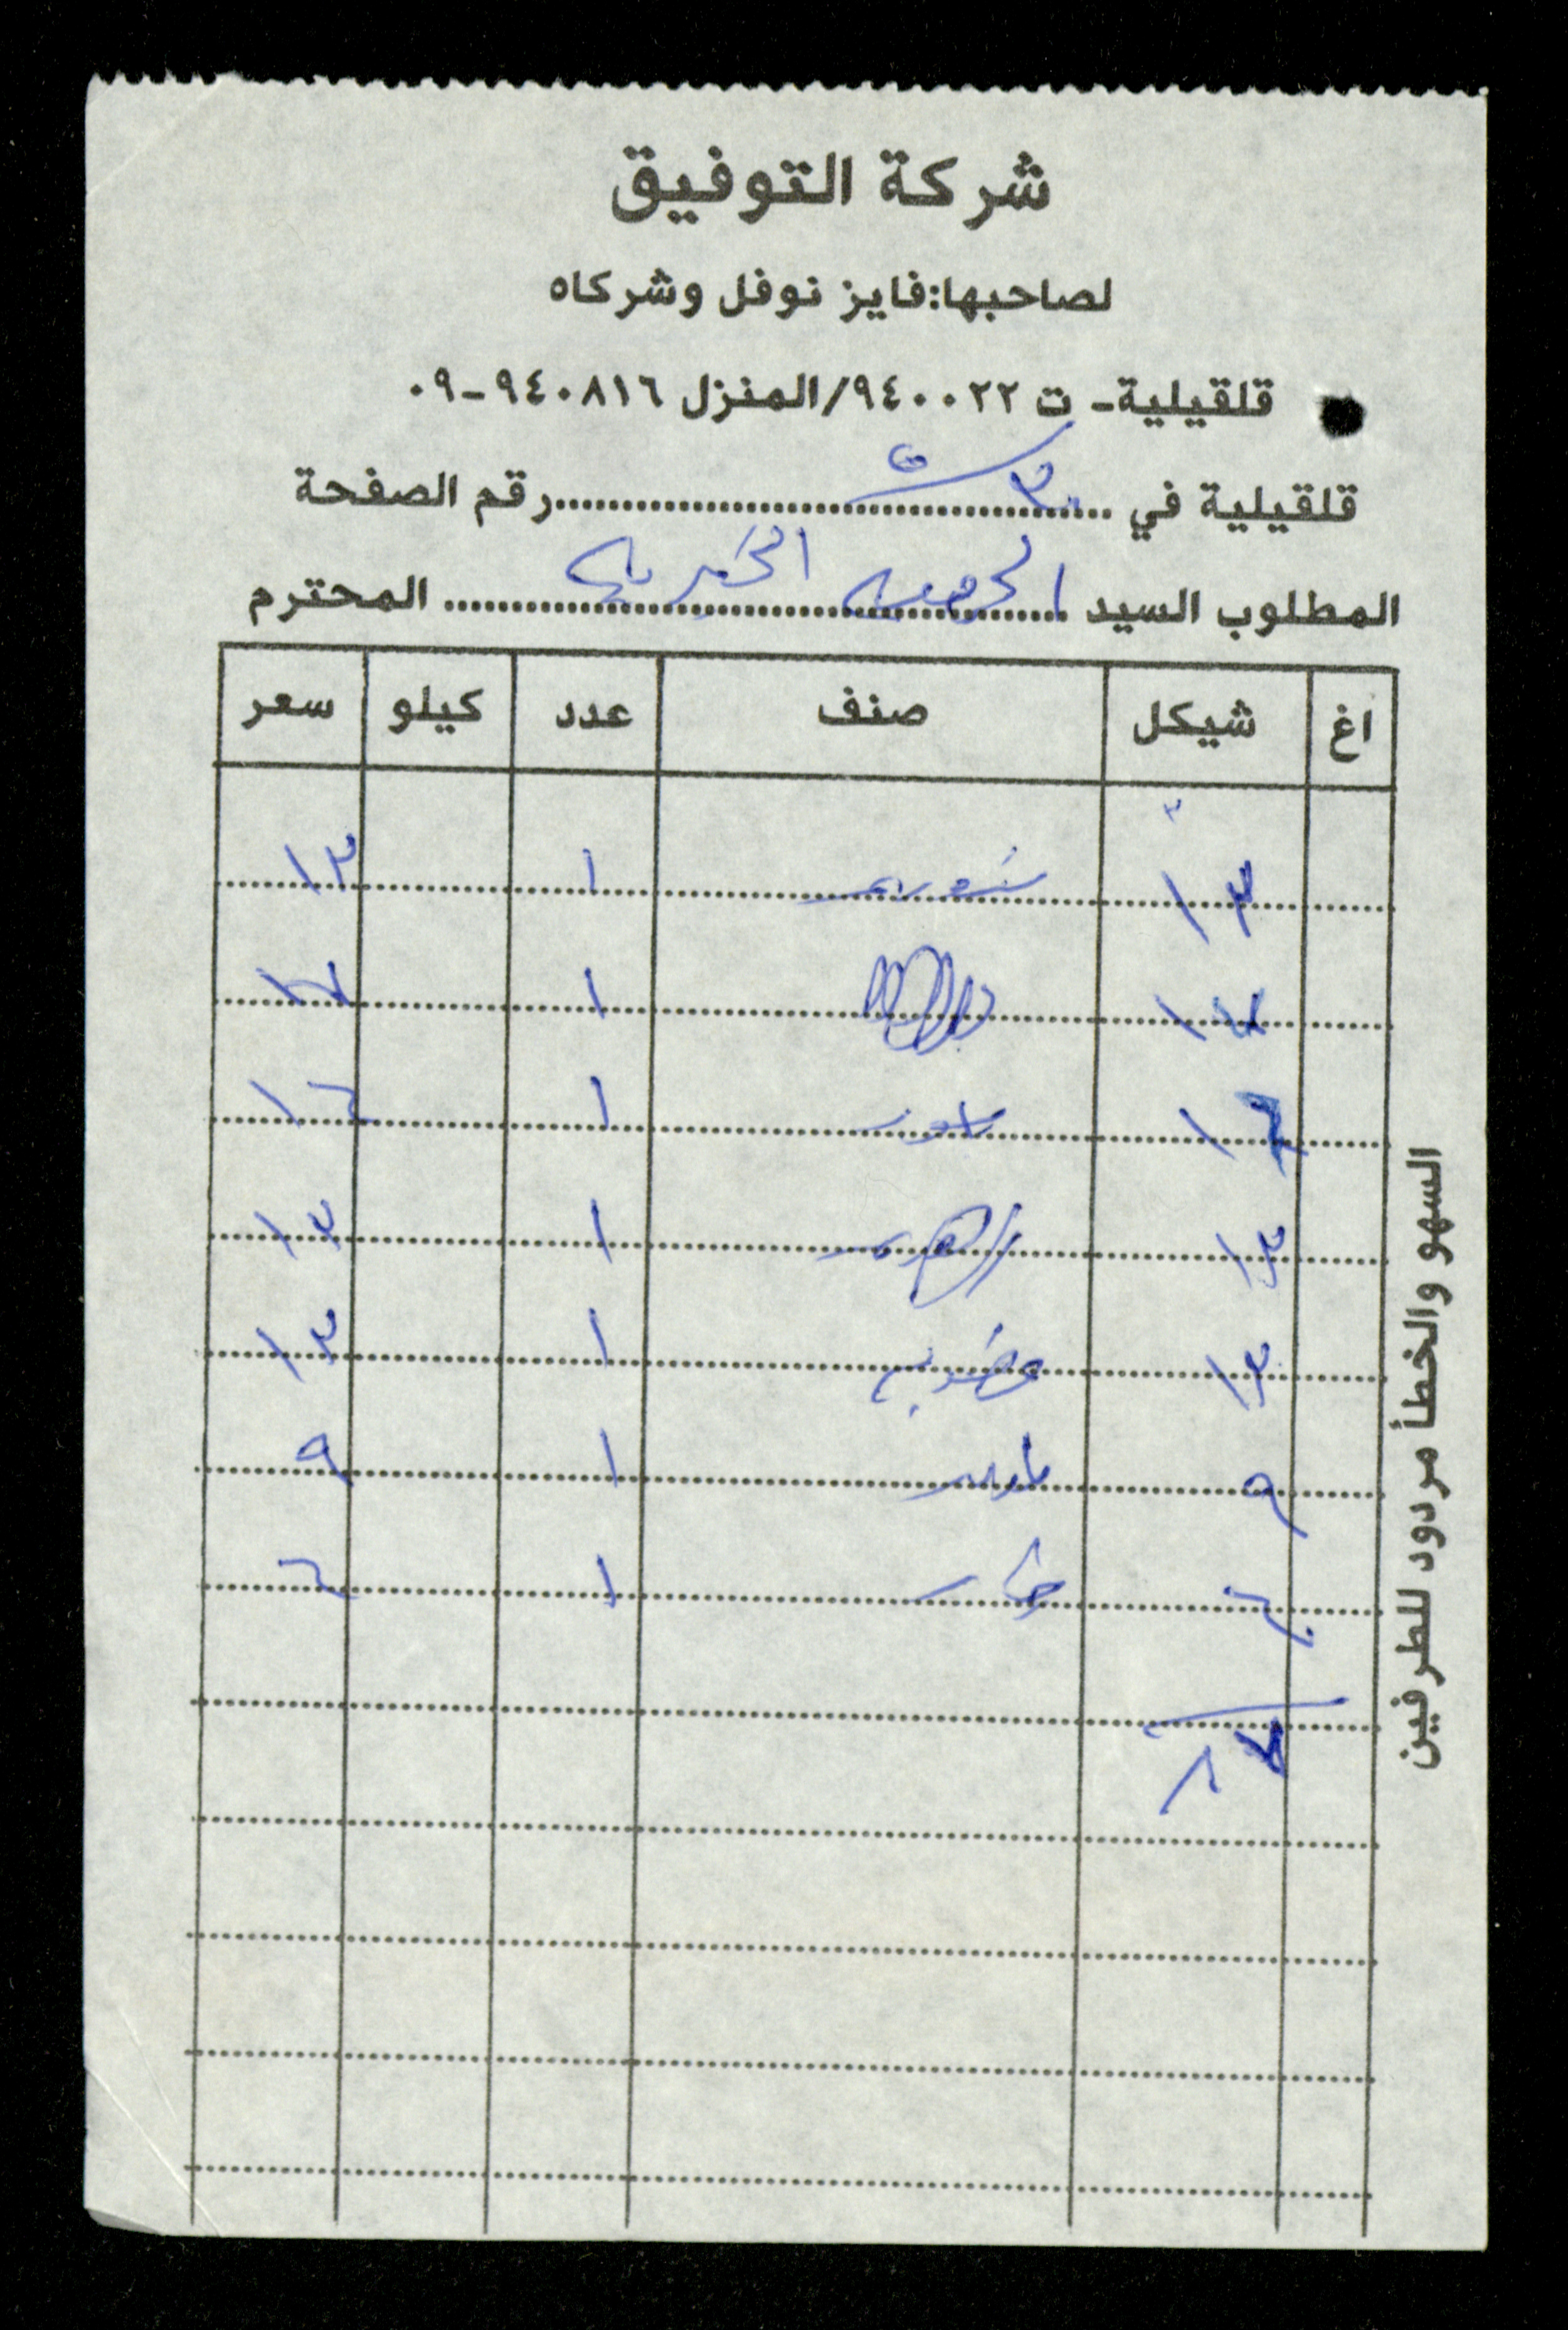 شركة التوفيق
لصاحبها:فايز نوفل وشركاه
قلقيلية- ت ٩٤٠٠٢٢/المنزل ٩٤٠٨١٦-٠٩
قلقيلية في رقم الصفحة
المطلوب السيد الجمعيه الخيريه المحترم
اغ شيكل صنف عدد كيلو سعر
١٣ ١ ١٣
١٧ ١ ١٧
١٦ ١ ١٦
١٣ ١ ١٣
١٣ ١ ١٣
٩ ١ ٩
٦ ١ ٦
٨٧
السهو والخطأ مردود للطرفين